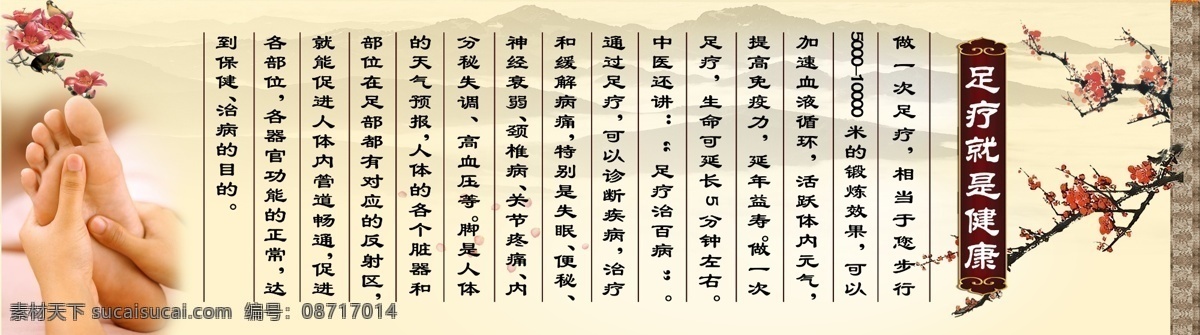 足疗就是健康
做一次足疗,相当于您步行
5000-10000 米的锻炼效果,可以
加速血液循环,活跃体内元气,
提高免疫力,延年益寿。做一次
足疗,生命可延长 5 分钟左右。
中医还讲:“足疗治百病”。
通过足疗,可以诊断疾病,治疗
和缓解病痛,特别是失眠、便秘、
神经衰弱、颈椎病、关节疼痛、内
分秘失调、高血压等。脚是人体
的天气预报,人体的各个脏器和
部位在足部都有对应的反射区,
就能促进人体内营道畅通,促进
各部位,各器官功能的正常,达
到保健、治病的目的。
素材天下 sucaisucai.com 编号:08717014